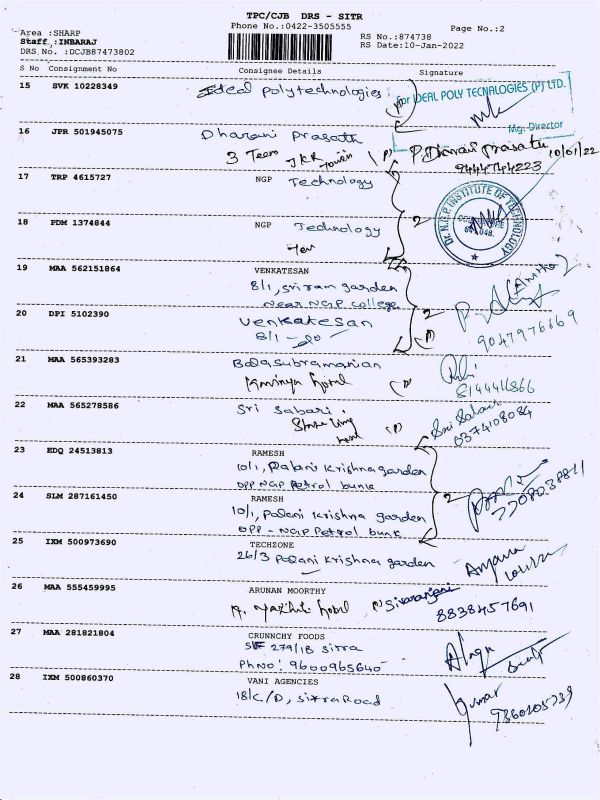 TPC/CJB DRS - SITR
Phone No.:0422-3505555
Page No.:2
Area :SHARP
Staff :INBARAJ
DRS No. :DCJB87473802
RS No.:874738
RS Date:10-Jan-2022
S No Consignment No Consignee Details Signature
15 SVK 10228349 Ideal polytechnologies
for IDEAL POLY TECNALOGIES (P) LTD.
Mg. Director
16 JPR 501945075 Dharani Prasath P. Dharani Prasath 10/01/22
3 Team JKR (P) 9444744223
17 TRP 4615727 NGP Technology
Dr. N.G.P. INSTITUTE OF TECHNOLOGY
18 PDM 1374844 NGP Technology 2
19 MAA 562151864 VENKATESAN
8/1, sriram garden
near NGP college 2
20 DPI 5102390 Venkatesan (P)
8/1 - do 9047976669
21 MAA 565393283 Balasubramanian
hotel (P)
22 MAA 565278586 Sri Sabari Sri Sabari
(P) 6374108084
23 EDQ 24513813 RAMESH
10/1, Palani Krishna garden
OPP NGP Petrol bunk
24 SLM 287161450 RAMESH 2
10/1, Palani Krishna garden
OPP - NGP Petrol bunk
25 IXM 500973690 TECHZONE
26/3 Palani Krishna garden
26 MAA 555459995 ARUNAN MOORTHY Sivaranjani
hotel 8838457691
27 MAA 281821804 CRUNNCHY FOODS
SF 279/1B sitra
Ph No: 9600965640
28 IXM 500860370 VANI AGENCIES
18/C/D, sitra Road Kumar